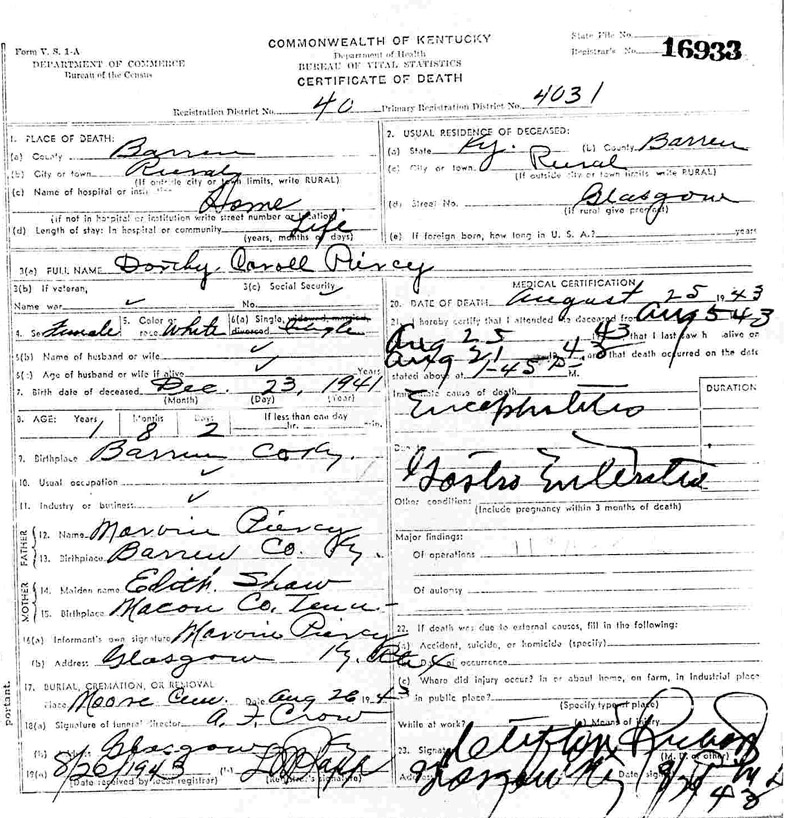 Form V. S. 1-A
DEPARTMENT OF COMMERCE
Bureau of the Census
COMMONWEALTH OF KENTUCKY
Department of Health
BUREAU OF VITAL STATISTICS
CERTIFICATE OF DEATH
State File No.
Registrar's No. 16933
Registration District No. 40 Primary Registration District No. 4031
1. PLACE OF DEATH:
(a) County Barren
(b) City or town Rural
(If outside city or town limits, write RURAL)
(c) Name of hospital or
Home
(if not in hospital or institution write street number or location)
(d) Length of stay: In hospital or community Life
(years, months or days)
2. USUAL RESIDENCE OF DECEASED:
(a) State Ky. (b) County Barren
(c) City or town Rural
(If outside city or town limits write RURAL)
(d) Street No. Glasgow
(if rural give precinct)
(e) If foreign born, how long in U. S. A.? years
3(a) FULL NAME Dorthy Carroll Piercy
3(b) If veteran,
Name war
3(c) Social Security
No.
4. Sex Female 5. Color or race White 6(a) Single, widowed, married, divorced Single
6(b) Name of husband or wife
6(c) Age of husband or wife if alive Years
7. Birth date of deceased Dec. 23, 1941
(Month) (Day) (Year)
8. AGE: Years Months Days If less than one day
1 8 2 hr. min.
9. Birthplace Barren Co Ky.
10. Usual occupation
11. Industry or business
FATHER
12. Name Marvin Piercy
13. Birthplace Barren Co. Ky.
MOTHER
14. Maiden name Edith Shaw
15. Birthplace Macon Co. Tenn
16(a) Informant's own signature Marvin Piercy
(b) Address Glasgow Ky. Rt 4
17. BURIAL, CREMATION, OR REMOVAL
Place Moore Cem. Date Aug 26 1943
18(a) Signature of funeral director A. F. Crow
(b) Address Glasgow Ky
19(a) 8/26/1943 (b)
(Date received by local registrar) (Registrar's signature)
MEDICAL CERTIFICATION
20. DATE OF DEATH August 25 1943
21. I hereby certify that I attended the deceased from Aug 5 43
Aug 25 43 that I last saw h alive on
Aug 21 43 and that death occurred on the date
stated above at 1-45 P M.
Immediate cause of death DURATION
Encephalitis
Due to
Gastro Enteritis
Other conditions
(Include pregnancy within 3 months of death)
Major findings:
Of operations
Of autopsy
22. If death was due to external causes, fill in the following:
(a) Accident, suicide, or homicide (specify)
(b) Date of occurrence
(c) Where did injury occur? in or about home, on farm, in industrial place
in public place?
(Specify type of place)
While at work? (e) Means of injury
23. Signature Clifton
(M. D. or other)
Address Glasgow Ky Date signed
portant.